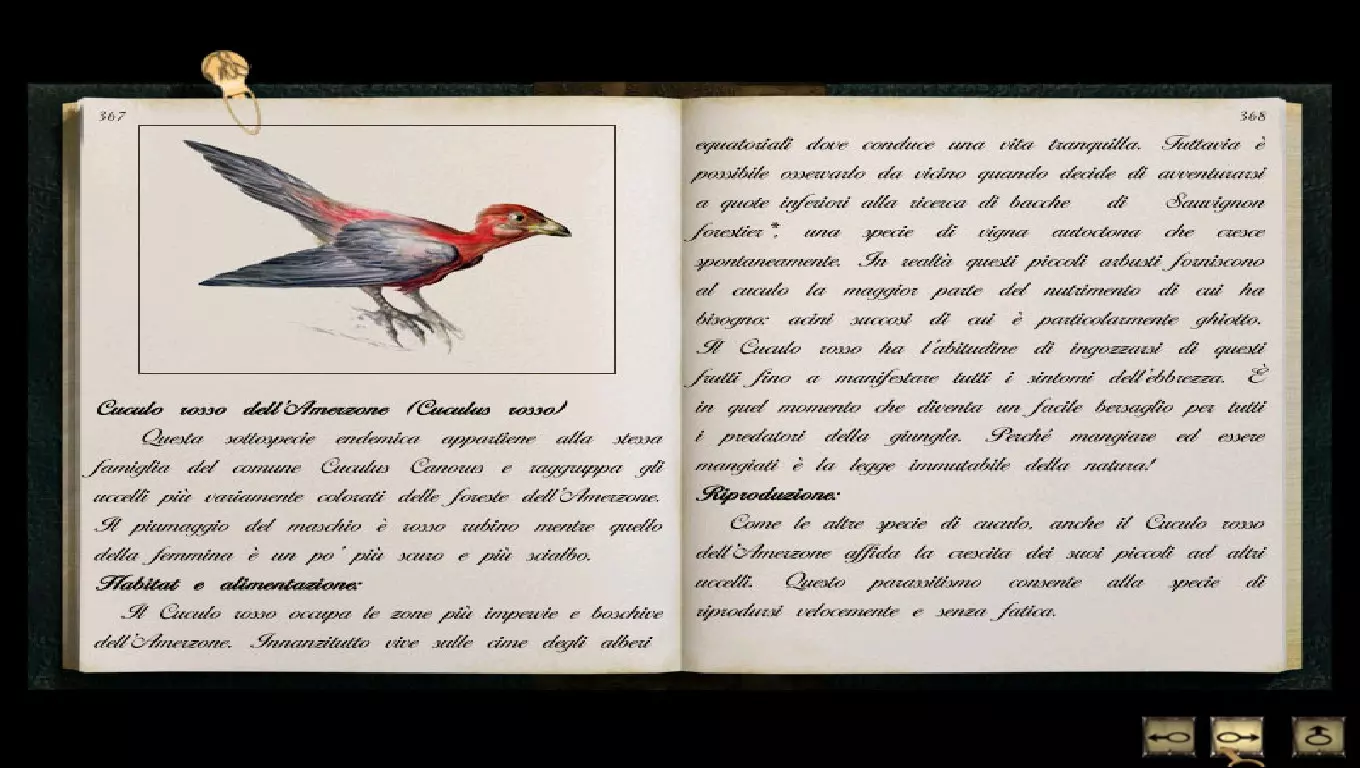 367
Cuculo rosso dell'Amerzone (Cuculus rosso)
Questa sottospecie endemica appartiene alla stessa
famiglia del comune Cuculus Canorus e raggruppa gli
uccelli più variamente colorati delle foreste dell'Amerzone.
Il piumaggio del maschio è rosso rubino mentre quello
della femmina è un po' più scuro e più scialbo.
Habitat e alimentazione:
Il Cuculo rosso occupa le zone più impervie e boschive
dell'Amerzone. Innanzitutto vive sulle cime degli alberi
368
equatoriali dove conduce una vita tranquilla. Tuttavia è
possibile osservarlo da vicino quando decide di avventurarsi
a quote inferiori alla ricerca di bacche di Sauvignon
forestier*, una specie di vigna autoctona che cresce
spontaneamente. In realtà questi piccoli arbusti forniscono
al cuculo la maggior parte del nutrimento di cui ha
bisogno: acini succosi di cui è particolarmente ghiotto.
Il Cuculo rosso ha l'abitudine di ingozzarsi di questi
frutti fino a manifestare tutti i sintomi dell'ebbrezza. È
in quel momento che diventa un facile bersaglio per tutti
i predatori della giungla. Perché mangiare ed essere
mangiati è la legge immutabile della natura!
Riproduzione:
Come le altre specie di cuculo, anche il Cuculo rosso
dell'Amerzone affida la crescita dei suoi piccoli ad altri
uccelli. Questo parassitismo consente alla specie di
riprodursi velocemente e senza fatica.